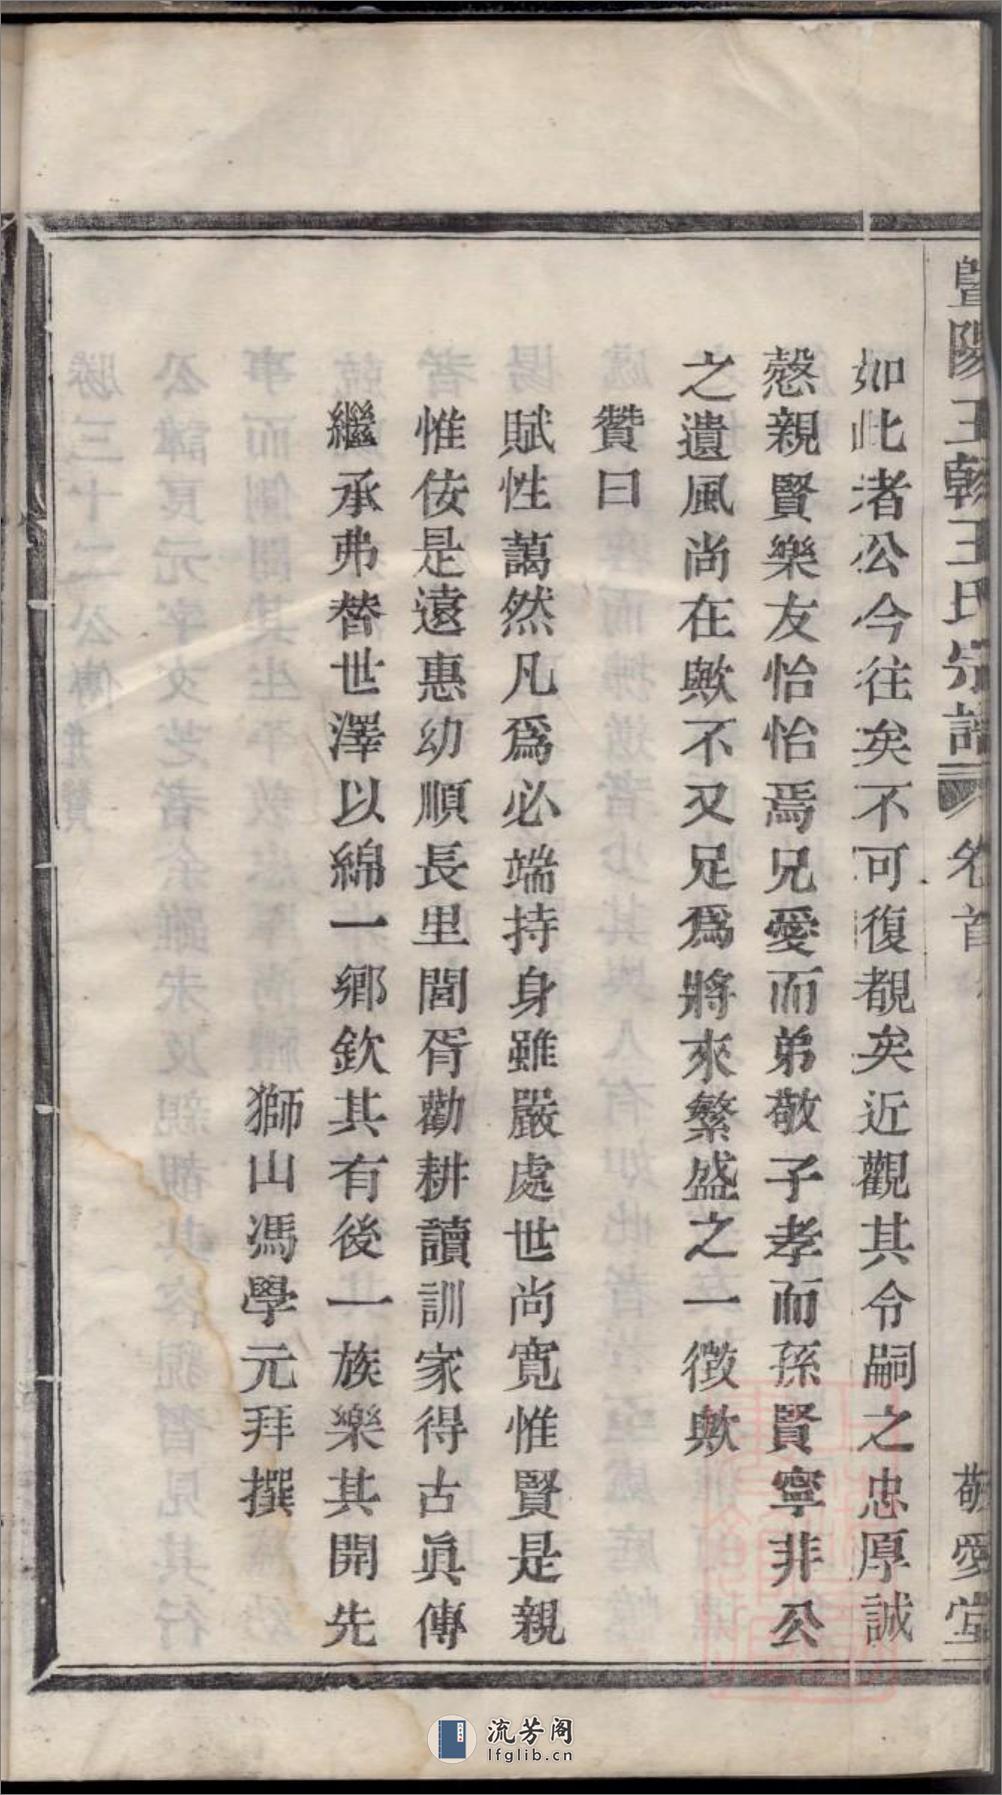 暨陽王韓王氏宗譜 卷首 敬愛堂
如此者公今往矣不可復覩矣近觀其令嗣之忠厚誠
慤親賢樂友怡怡焉兄愛而弟敬子孝而孫賢寧非公
之遺風尚在歟不又足爲將來繁盛之一徵歟
贊曰
賦性藹然凡爲必端持身雖嚴處世尚寬惟賢是親
惟侫是遠惠幼順長里閭胥勸耕讀訓家得古眞傳
繼承弗替世澤以綿一鄉欽其有後一族樂其開先
獅山馮學元拜撰
流芳阁
lfglib.cn